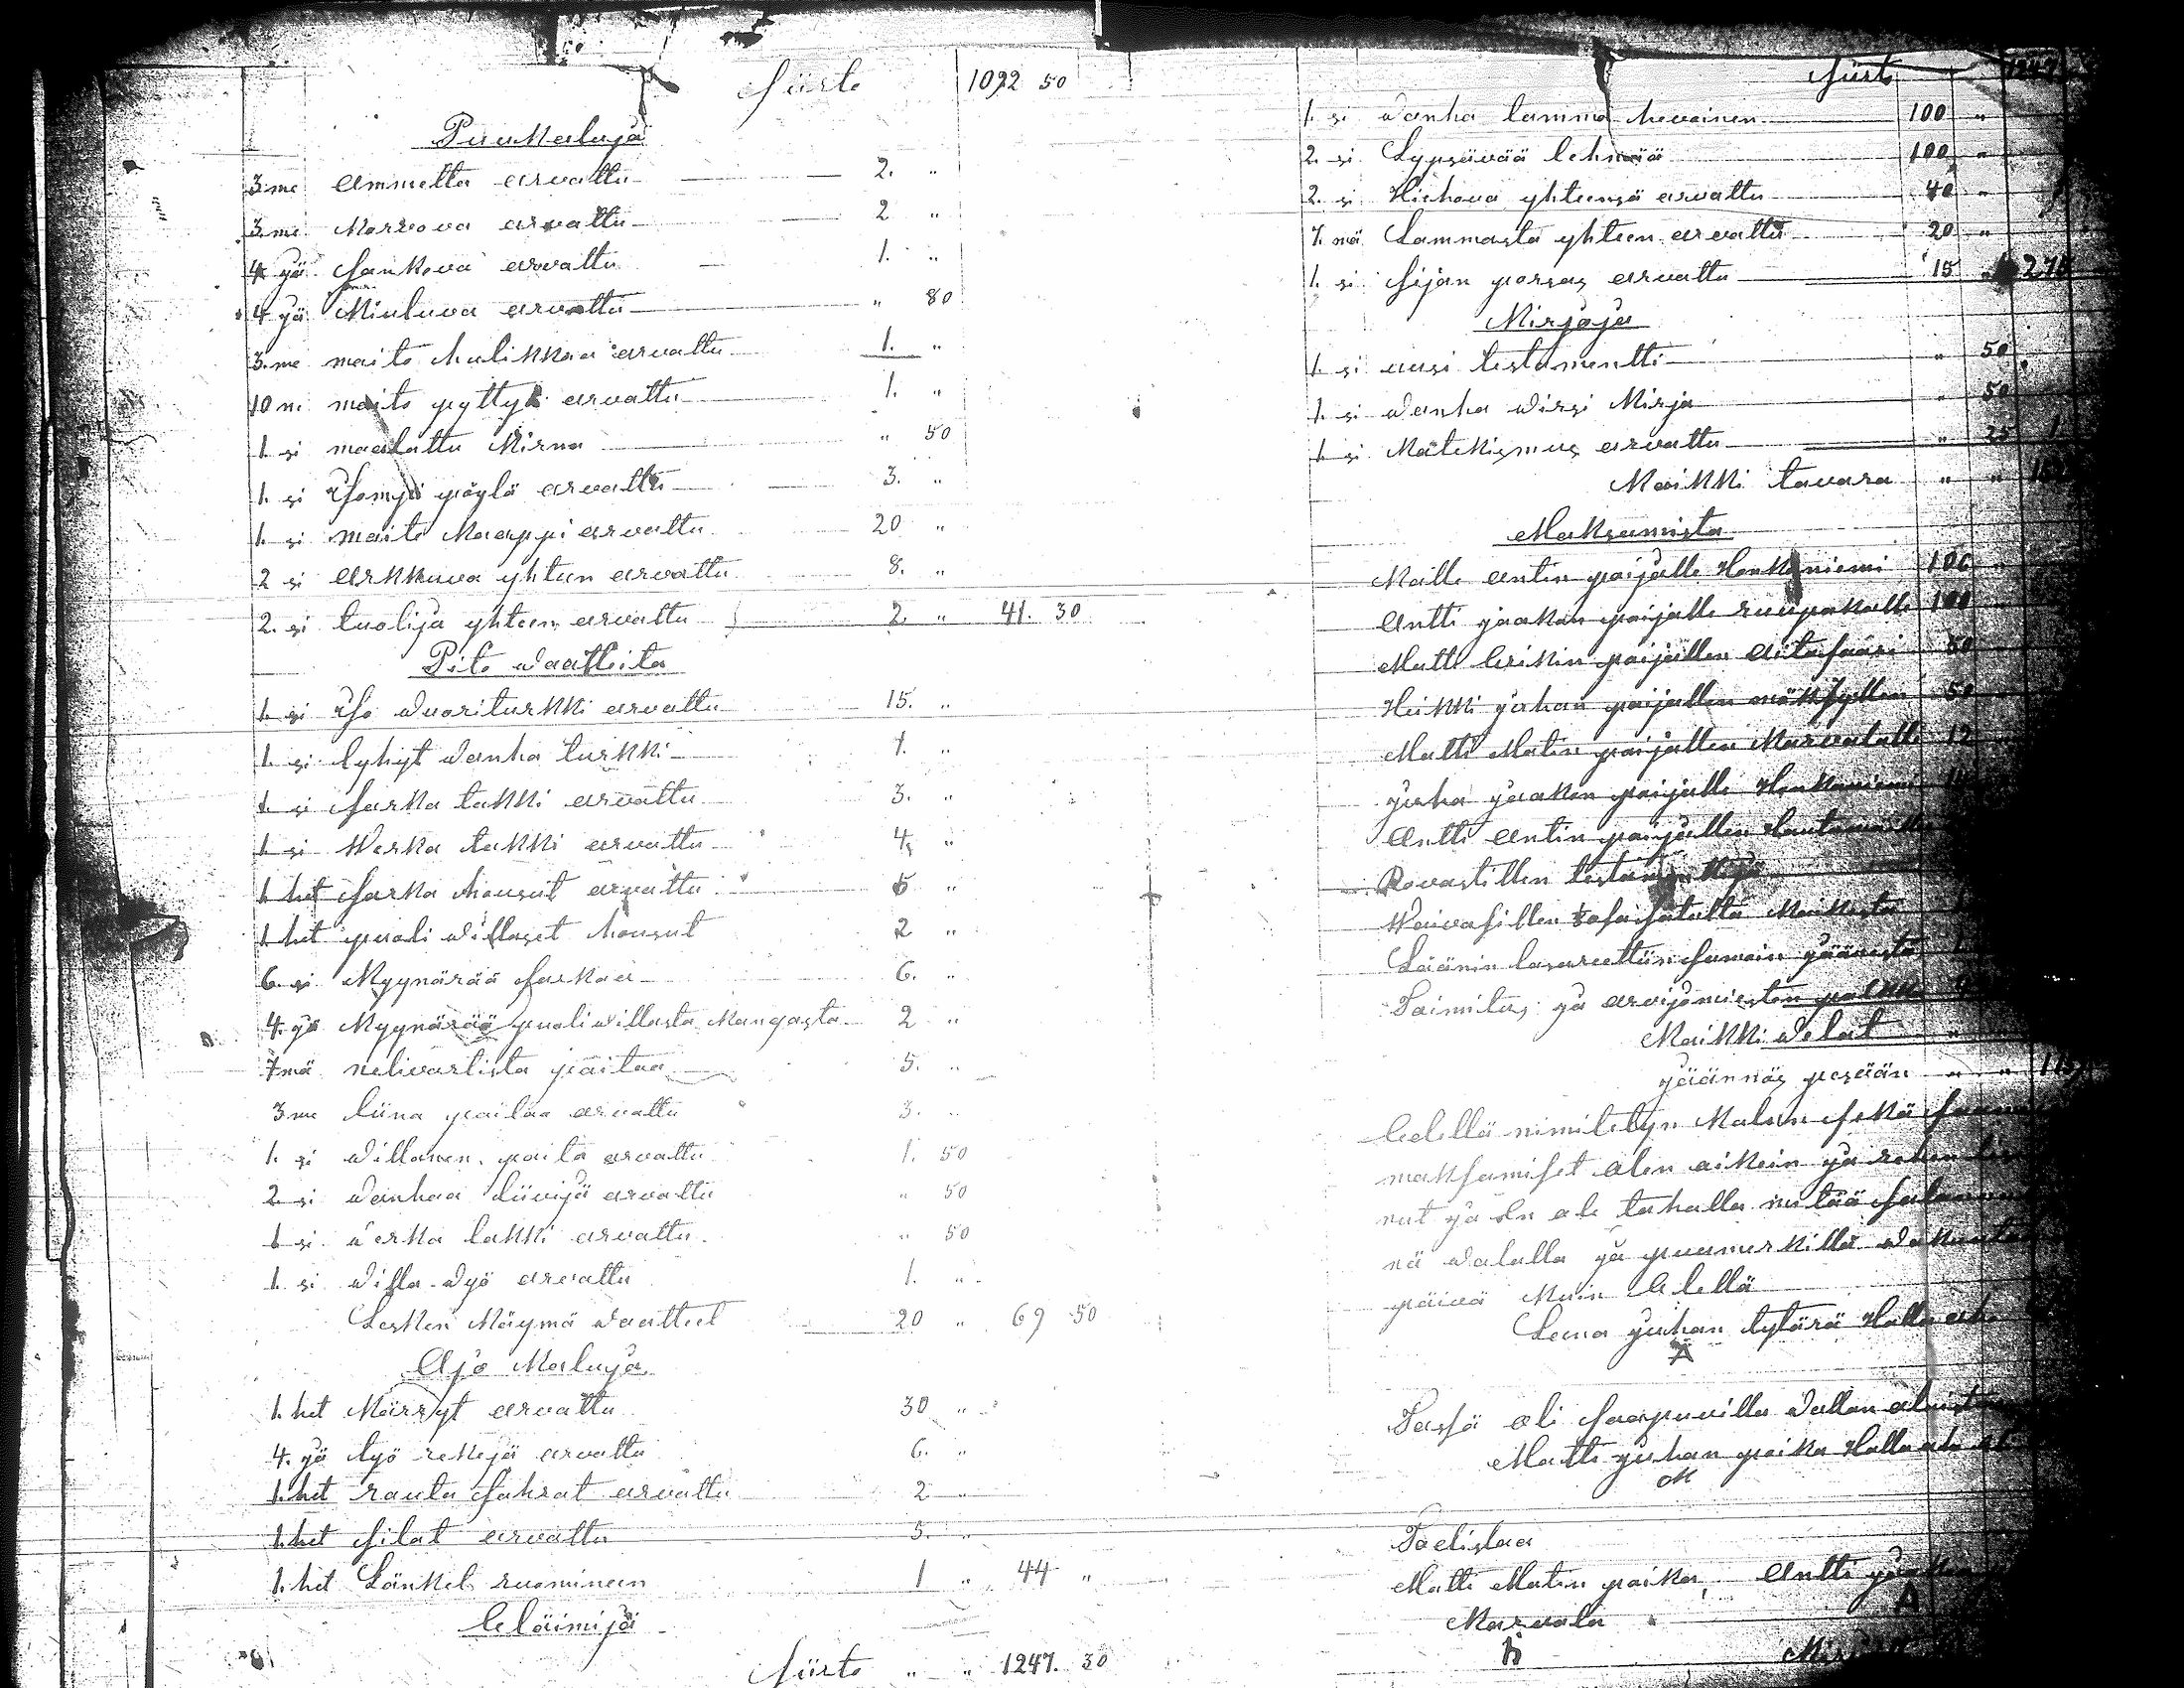 Siirto 1092 50
Puukaluja
3:me ammetta arvattu 2. "
3:me korvova arvattu 2 "
4 jä sankova arvattu 1. "
4 jä kiuluva arvattu " 80
3:me maito hulikkaa arvattu 1. "
10 n. maito pyttyä arvattu 1. "
1. si maalattu kirnu " 50
1. si Isompi pöytä arvattu 3. "
1. si maito kaappi arvattu 20 "
2 si arkkuva yhteen arvattu 8. "
2. si tuolija yhteen arvattu 2. " 41. 30
Pito vaatteita
1. si Iso vuoriturkki arvattu 15. "
1. si lyhyt vanha turkki 1. "
1. si sarka takki arvattu 3. "
1. si Verka takki arvattu 4 "
1. het sarka housut arvattu 5 "
1. het puoli villaset housut 2 "
6. si kyynärää sarkaa 6. "
4. jä kyynärää puolivillasta kangasta 2 "
7mä nelivartista paitaa 5. "
3 me liina paitaa arvattu 3. "
1. si villanen paita arvattu 1. 50
2 si vanhaa liivijä arvattu " 50
1. si verka lakki arvattu " 50
1. si villa vyö arvattu 1. "
Lesken käymä vaatteet 20 " 69 50
Ajo kaluja
1. het kärryt arvattu 30 "
4. jä työ rekejä arvattu 6. "
1. het rauta sahrat arvattu 2 "
1. het silat arvattu 5. "
1. het Länket ruomineen 1 " 44 "
Eläimijä
Siirto " " 1247. 30
Siirto 1247
1. si vanha tamma hevoinen 100 "
2. si Lypsävää lehmää 100 "
2. si Hiehova yhteensä arvattu 40 "
7. mä Lammasta yhteen arvattu 20 "
1. si sijan porsas arvattu 15 " 275
Kirjoja
1. si uusi testamentti " 50
1. si vanha virsi kirja " 50
1. si katekismus arvattu " 25
Kaikki tavara " "
Maksamista
Kalle antin poijalle Honkaniemi 100
Antti jaakon poijalle ruupakalle 100
Matti Erikin poijallen Aitosaari 50
Heikki juhan poijallen 50
Matti Matin poijallen Karvalalle 12
juha jaakon poijalle Honkaniemi
Antti Antin poijallen
Rovastillen
Vaivasillen kaikesta
Läänin lasarettiin samoin päänestä
Toimitus ja arvijomiesten palkka
Kaikki velat
jäännös pesään " "
Edellä nimitetyn kalun sekä
maksamiset olen oikein ja
nut ja en ole tahalla mitää
nä valalla ja puumerkillä
päivä kuin Edellä
Leena juhan tytärä
Tässä oli saapuvilla
Matti juhan poika
M
Todistaa
Matti Matin poika, Antti
Karvala A